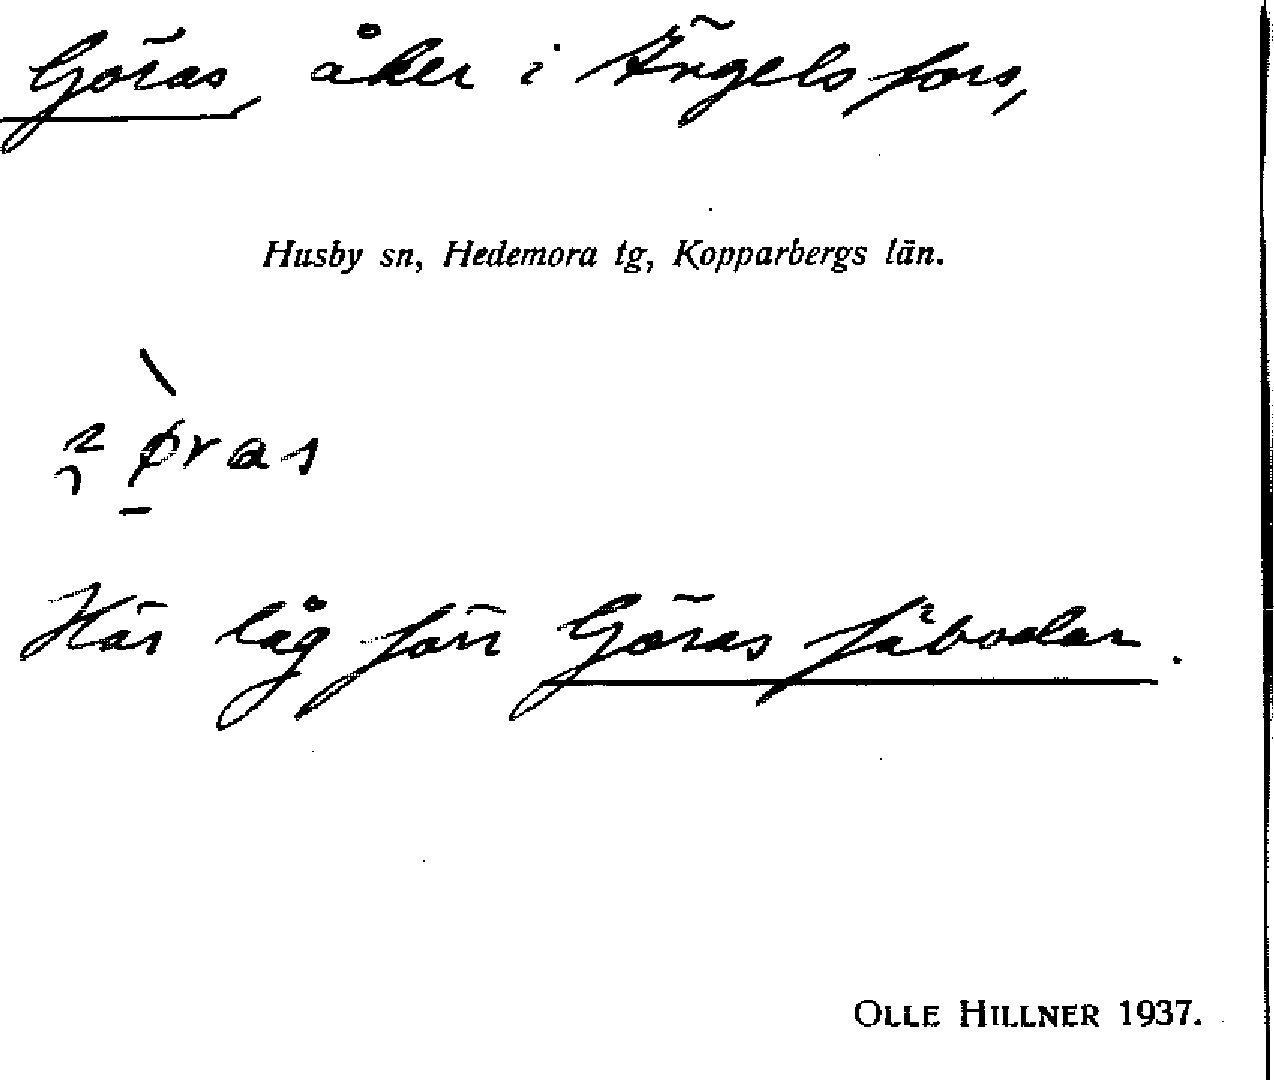 Göras, åker i Ängelsfors,
Husby sn, Hedemora tg, Kopparbergs län.
øras
Här låg förr Göras fäbodar.
OLLE HILLNER 1937.